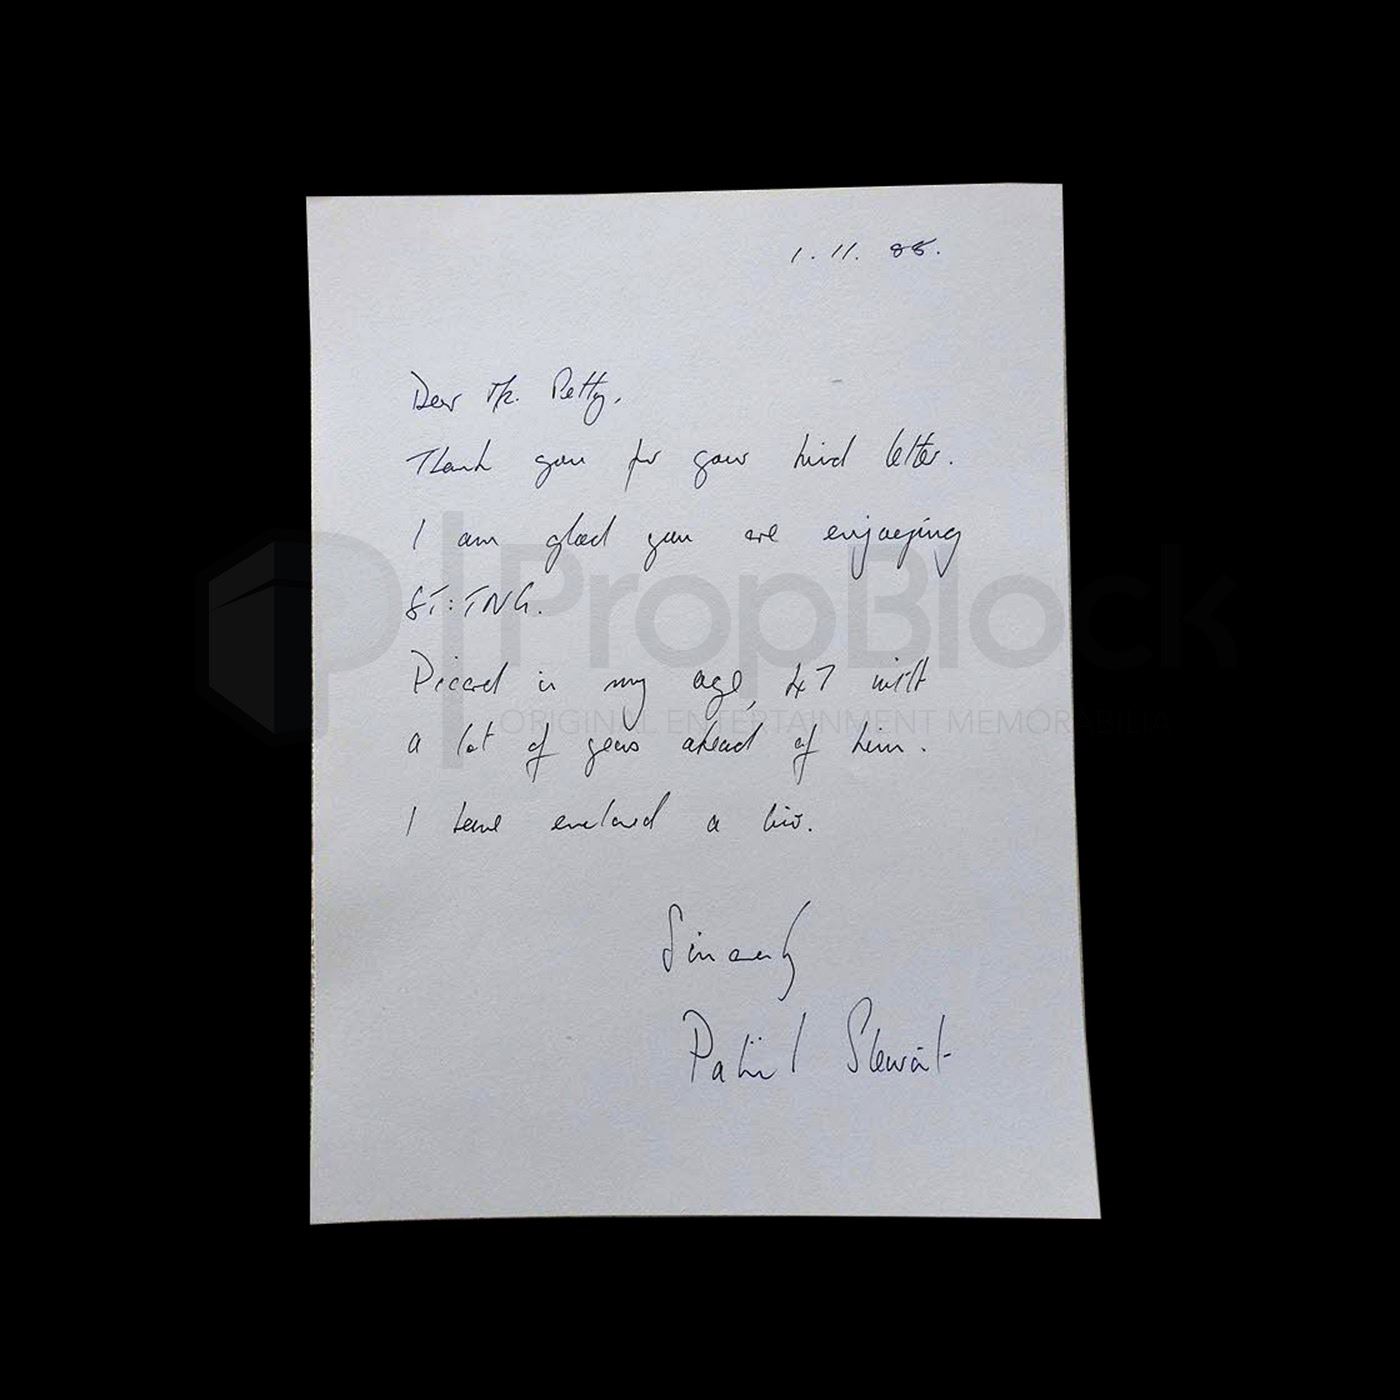 1. 11. 88.
Dear Mr. Petty,
Thank you for your kind letter.
I am glad you are enjoying
ST:TNG.
Picard is my age, 47 with
a lot of years ahead of him.
I have enclosed a bio.
Sincerely
Patrick Stewart
PropBlock
ORIGINAL ENTERTAINMENT MEMORABILIA